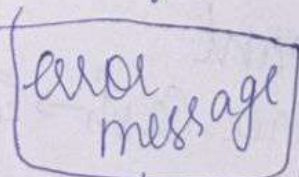 error
message